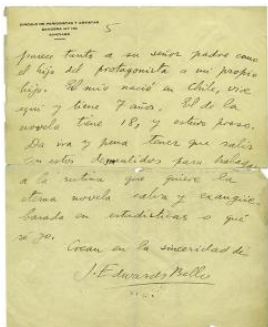 CIRCULO DE PERIODISTAS Y ARTISTAS
SANTIAGO
5
parece tanto a su señor padre como
el hijo del protagonista a mi propio
hijo. El mío nació en Chile, vive
aquí y tiene 7 años. El de la
novela tiene 18, y estuvo preso.
Da ira y pena tener que salir
con estos desmentidos para halagar
a la rutina que quiere la
eterna novela calva y exangüe
basada en estadísticas o qué
sé yo.
Crean en la sinceridad de
J. Edwards Bello